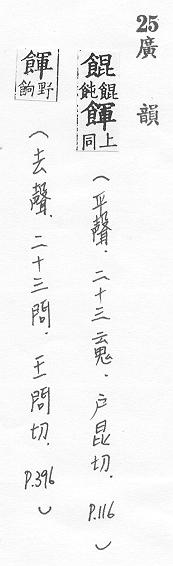 25 廣韻
餛 餛飩 餫 上同 (平聲.二十三䰟.户昆切. P.116)
餫 野餉 (去聲.二十三問.王問切. P.396)